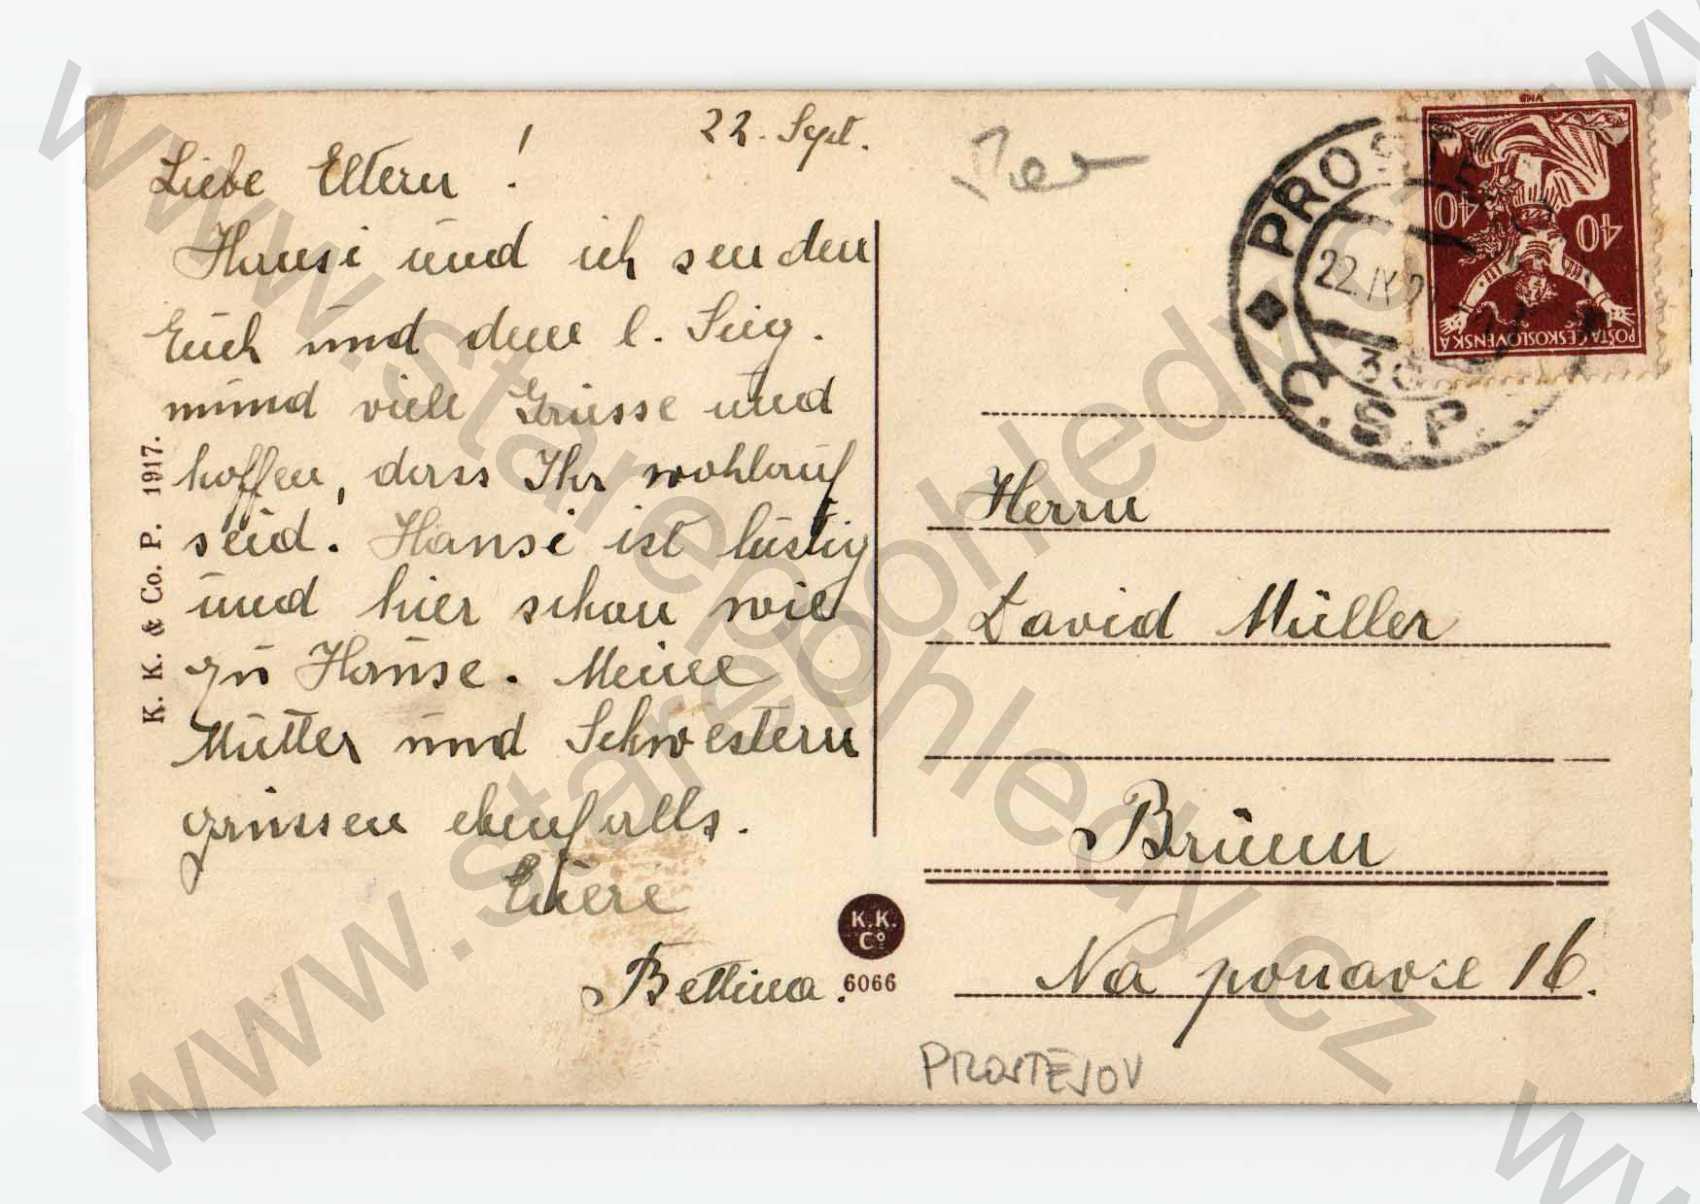 22. Sept.
Liebe Eltern !
Hansi und ich senden
Euch und dem l. Sieg.
mund viele Grüsse und
hoffen, dass Ihr wohlauf
seid. Hansi ist lustig
und hier schon wie
zu Hause. Meine
Mutter und Schwestern
grüssen ebenfalls.
Euere
Bettina.
K. K. & Co. P. 1917.
K.K.
Cº
6066
PROSTĚJ
22.IX.2
Č.S.P.
40 40
POŠTA ČESKOSLOVENSKÁ
Herrn
David Müller
Brünn
Na ponavce 16.
PROSTĚJOV
www.starepohledy.cz
www.starepohledy.cz